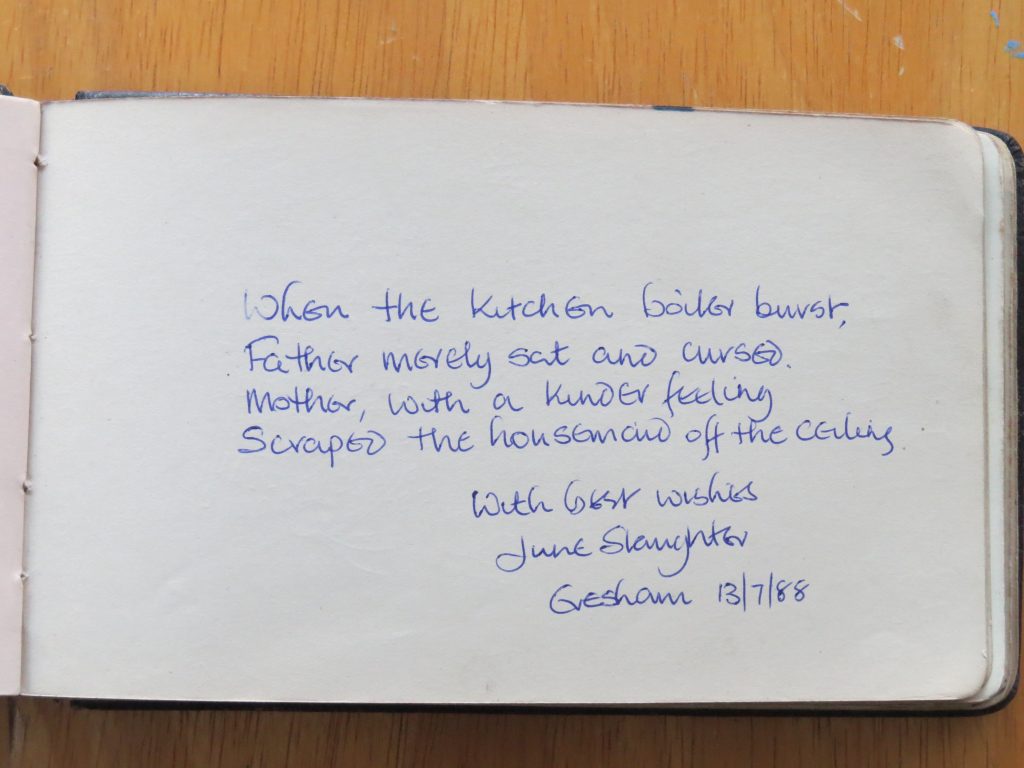 When the kitchen boiler burst,
Father merely sat and cursed.
Mother, with a kinder feeling
Scraped the housemaid off the ceiling
With best wishes
June Slaughter
Gresham 13/7/88